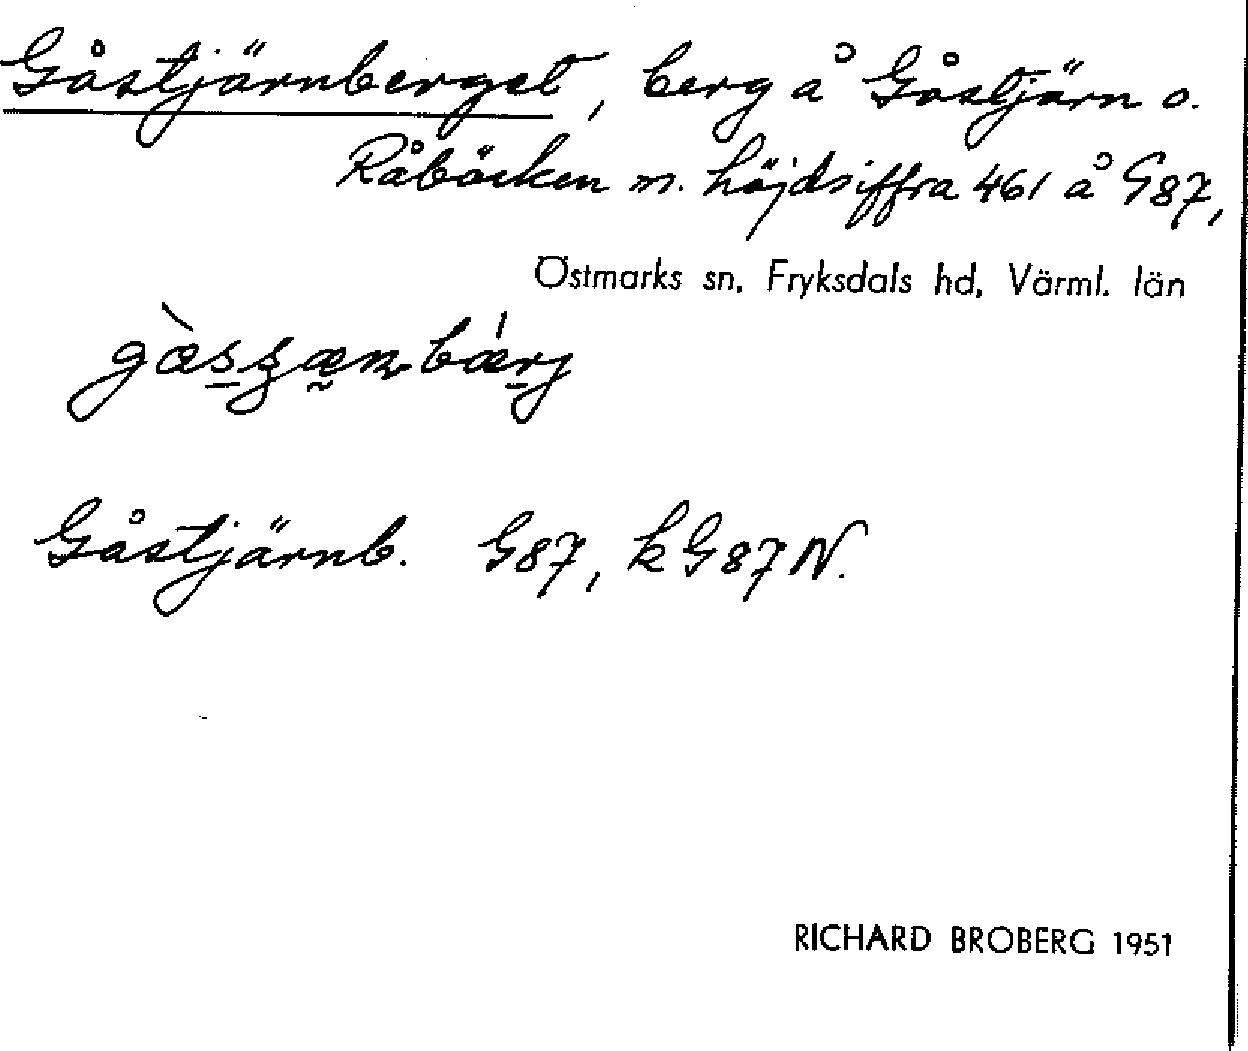 Gåstjärnberget, berg å Gåstjärn o.
Råbäcken m. höjdsiffra 461 å G87,
Östmarks sn, Fryksdals hd, Värml. län
Gåstjärnb. G87, k G87 N.
RICHARD BROBERG 1951